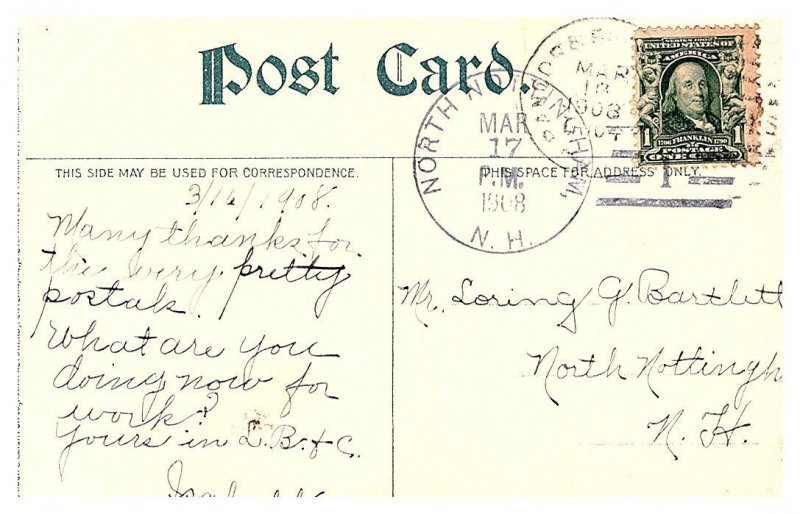 Post Card.
MAR
18
1908
NORTH NOTTINGHAM,
MAR
17
P.M.
1908
N. H.
SERIES 1902
UNITED STATES OF
AMERICA
1 1
1706 FRANKLIN 1790
POSTAGE
ONE CENT
1
THIS SIDE MAY BE USED FOR CORRESPONDENCE.
THIS SPACE FOR ADDRESS ONLY.
3/16/1908.
Many thanks for
the very pretty
postals.
What are you
doing now for
work?
Yours in L. B. & C.
Mr. Loring G. Bartlett
North Nottingh
N. H.